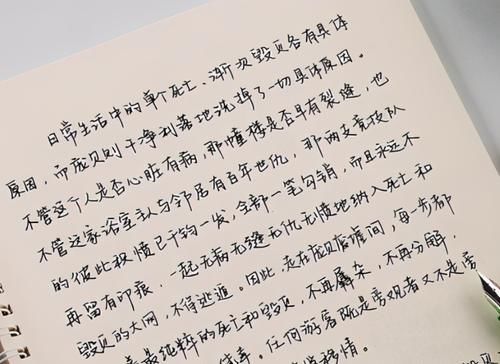 日常生活中的单个死亡、渐次毁灭各有具体
原因,而庞贝则干净利落地洗掉了一切具体原因。
不管这个人是否心脏有病,那幢楼是否早有裂缝,也
不管这家浴室主人与邻居有百年世仇,那两支竞技队
的彼此积愤已千钧一发,全部一笔勾销,而且永远不
再留有印痕,一起无病无缝无仇无愤地纳入死亡和
毁灭的大网,不得逃遁。因此,走在庞贝废墟间,每一步都
最纯粹的死亡和毁灭,不再羼杂,不再分解,
任何游客既是旁观者又不是旁